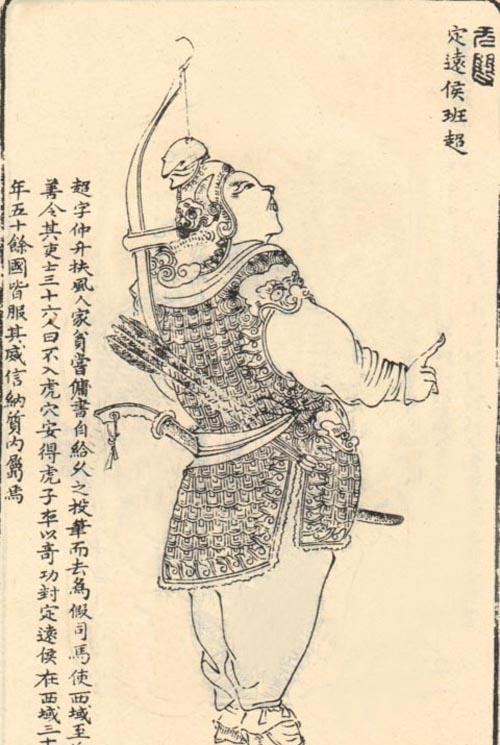 定遠侯班超
超字仲升扶風人家貧嘗傭書自給久之投筆而去爲假司馬使西域至
善令其吏士三十六人曰不入虎穴安得虎子卒以奇功封定遠侯在西域三十
年五十餘國皆服其威信納質內屬焉